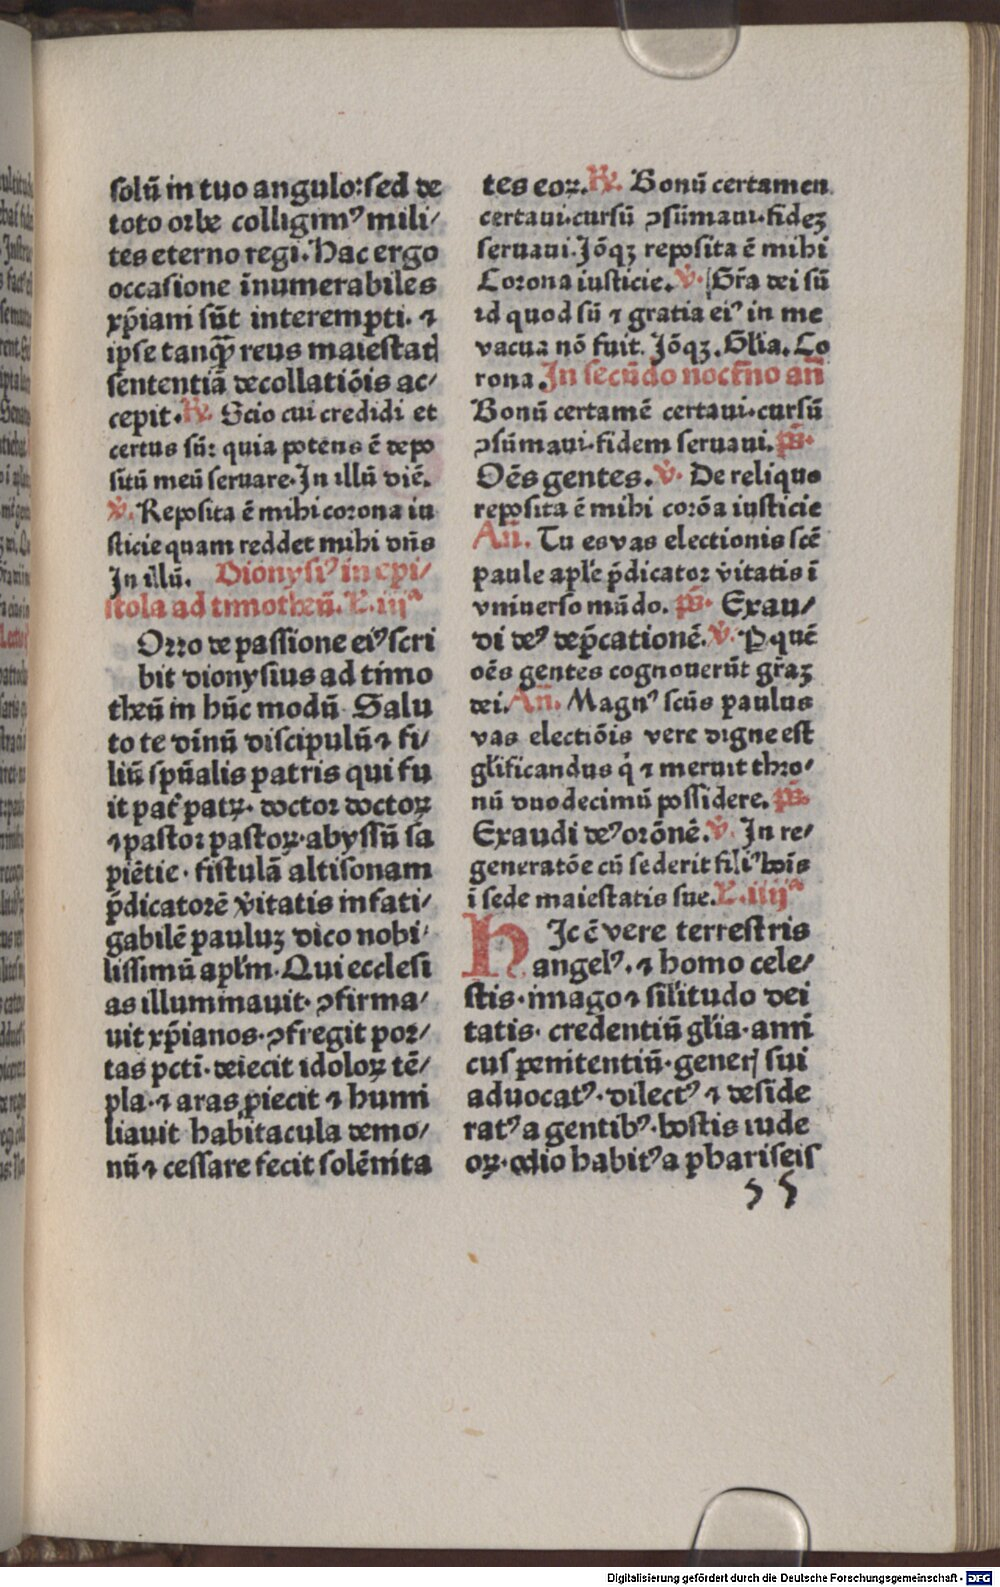 solū in tuo angulo: sed de
toto orbe colligimꝰ mili⸗
tes eterno regi. Hac ergo
occasione inumerabiles
xp̄iani sūt interempti. ⁊
ipse tanqȝ reus maiestat
sententiā decollatiōis ac⸗
cepit. ℟. Scio cui credidi et
certus sū: quia potens ē depo
sitū meū seruare. In illū diē.
℣. Reposita ē mihi corona iu
sticie quam reddet mihi dn̄s
In illū. Dionysiꝰ in epi⸗
stola ad timotheū. L. iijᵃ
Orro de passione eiꝰ scri
bit dionysius ad timo
theū in hūc modū. Salu
to te diuinū discipulū ⁊ fi⸗
liū spūalis patris qui fu
it pat̄ patꝝ. doctor doctoꝝ
⁊ pastor pastoꝝ. abyssū sa
piētie. fistulā altisonam
p̄dicatorē v̄itatis infati⸗
gabilē pauluȝ dico nobi⸗
lissimū apl̄m. Qui ecclesi
as illuminauit. ꝯfirma⸗
uit xp̄ianos. ꝯfregit por⸗
tas pcti. deiecit idoloꝝ tē⸗
pla. ⁊ aras ꝓiecit ⁊ humi
liauit habitacula demo⸗
nū ⁊ cessare fecit solēnita
tes eoꝝ. ℟. Bonū certamen
certaui. cursū ꝯsūmaui. fideȝ
seruaui. Iōqȝ reposita ē mihi
Corona iusticie. ℣. Gr̄a dei sū
id quod sū ⁊ gratia eiꝰ in me
vacua nō fuit. Iōqȝ. Gl̄ia. Co
rona. In secūdo noct̄no an̄
Bonū certamē certaui. cursū
ꝯsūmaui. fidem seruaui. ps̄.
Oēs gentes. ℣. De reliquo
reposita ē mihi corōa iusticie
An̄. Tu es vas electionis scē
paule apl̄e p̄dicator v̄itatis ī
vniuerso mūdo. ps̄. Exau⸗
di deꝰ dep̄cationē. ℣. P quē
oēs gentes cognouerūt gr̄aȝ
dei. An̄. Magnꝰ scūs paulus
vas electiōis vere digne est
gl̄ificandus q̇ ⁊ meruit thro⸗
nū duodecimū possidere. ps̄.
Exaudi deꝰ orōnē. ℣. In re⸗
generatōe cū sederit filiꝰ hoīs
ī sede maiestatis sue. L. iiijᵃ
HIc ē vere terrestris
angelꝰ. ⁊ homo cele⸗
stis. imago ⁊ sil̄itudo dei
tatis. credentiū gl̄ia. ami
cus penitentiū. generj sui
aduocatꝰ. dilectꝰ ⁊ deside
ratꝰ a gentibꝰ. hostis iude
oꝝ. odio habitꝰ a phariseis
ꝯꝯ
Digitalisierung gefördert durch die Deutsche Forschungsgemeinschaft - DFG